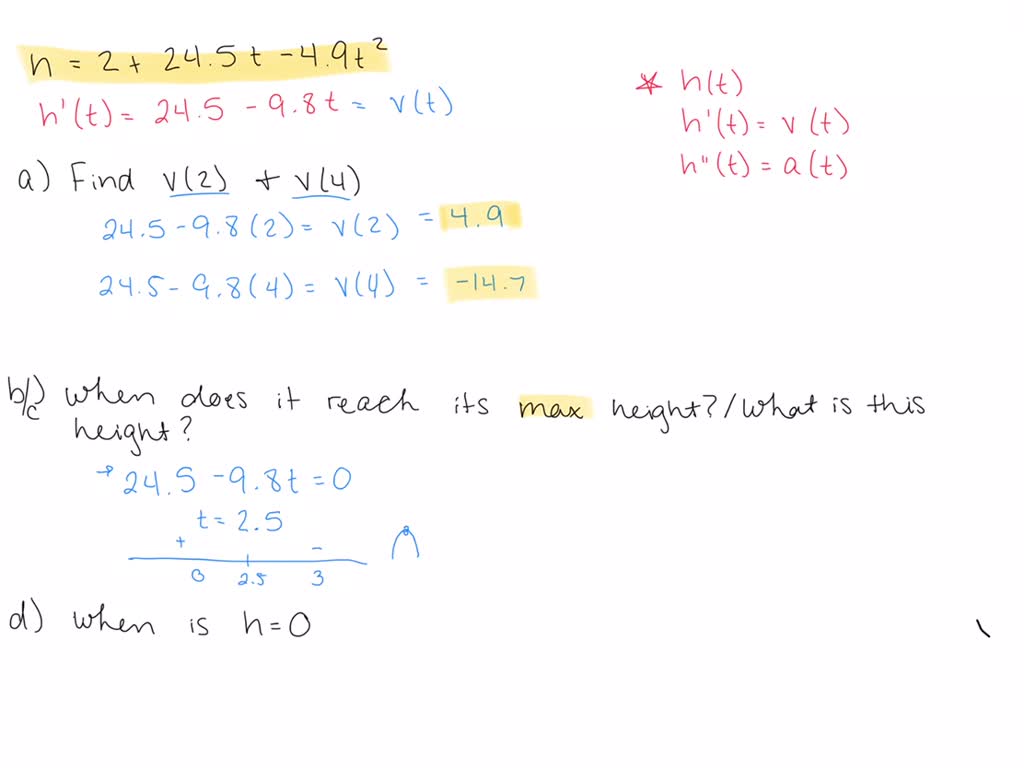 h = 2 + 24.5t - 4.9t²
h'(t) = 24.5 - 9.8t = v(t)
* h(t)
h'(t) = v(t)
h"(t) = a(t)
a) Find v(2) + v(4)
24.5 - 9.8(2) = v(2) = 4.9
24.5 - 9.8(4) = v(4) = -14.7
b/c) when does it reach its max height?/what is this
height?
→ 24.5 - 9.8t = 0
t = 2.5
+ -
0 2.5 3
d) when is h=0